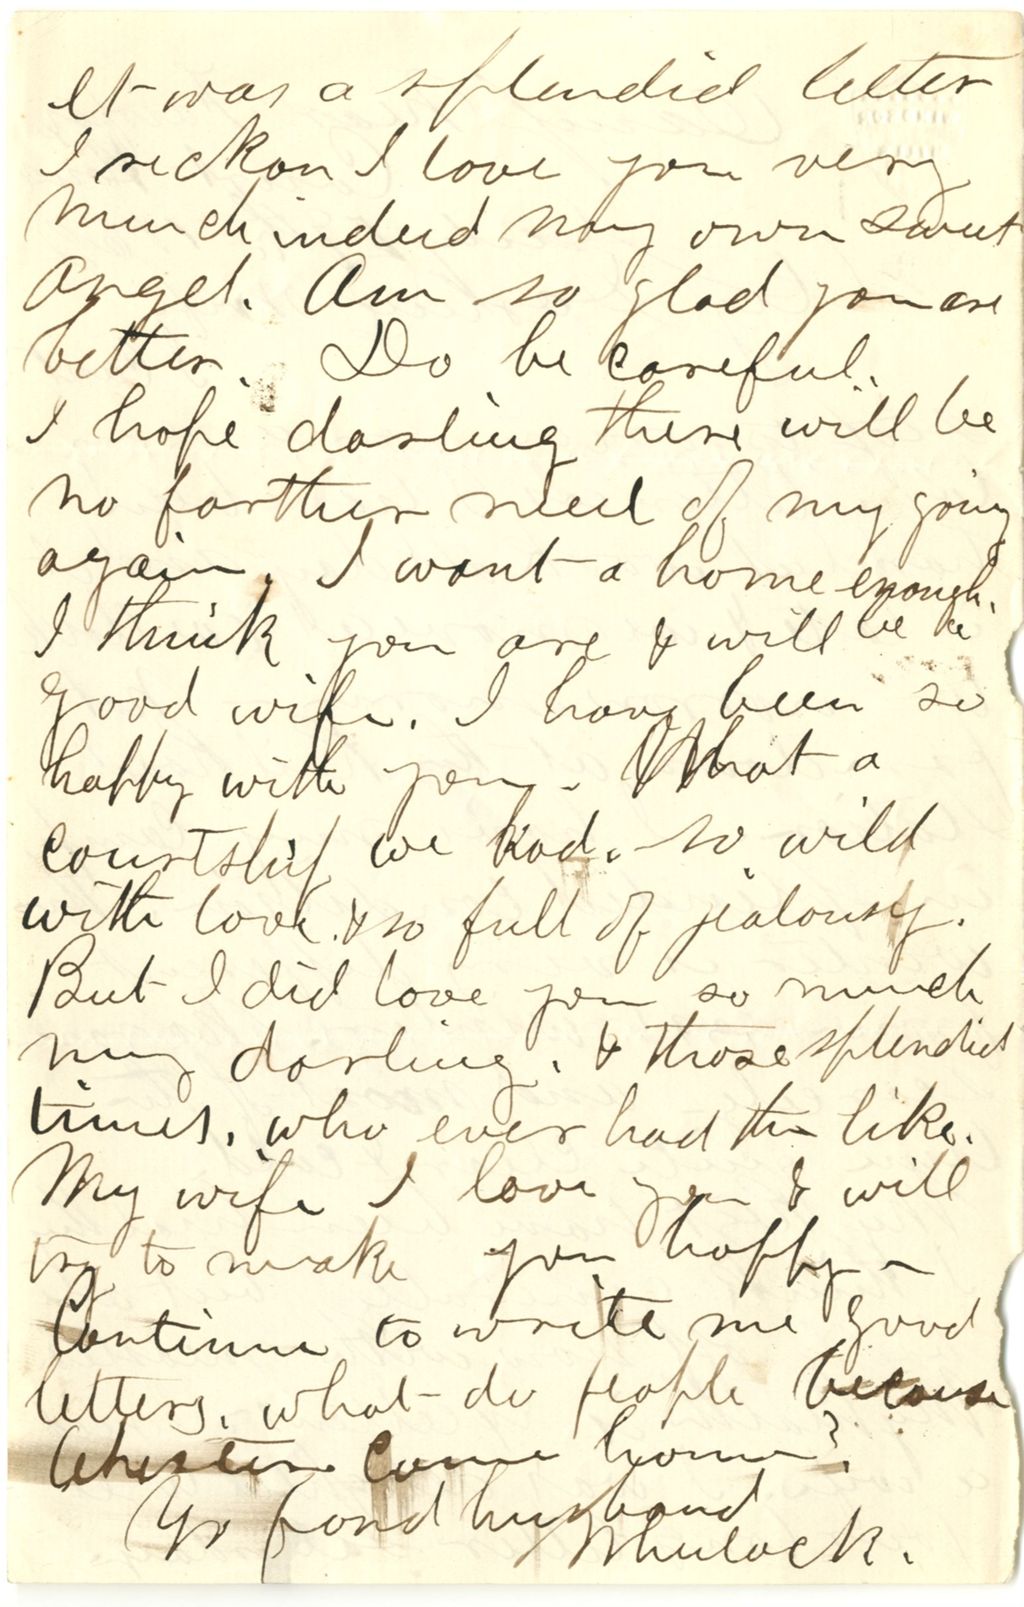 It was a splendid letter
I reckon I love you very
much indeed my own sweet
angel. Am so glad you are
better. Do be careful.
I hope darling there will be
no farther need of my going
again. I want a home enough.
I think you are & will be a
good wife. I have been so
happy with you. What a
courtship we had. so wild
with love. & so full of jealousy.
But I did love you so much
my darling. & those splendid
times. who ever had the like.
My wife I love you & will
try to make you happy -
Continue to write me good
letters. what do people because
Chester come home?
Yr fond husband